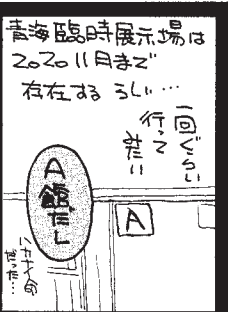 青海臨時展示場は
2020 11月まで
存在する らしい…
一回ぐらい
行って
みたい
A館だし
A
ハカナイ命
だった…